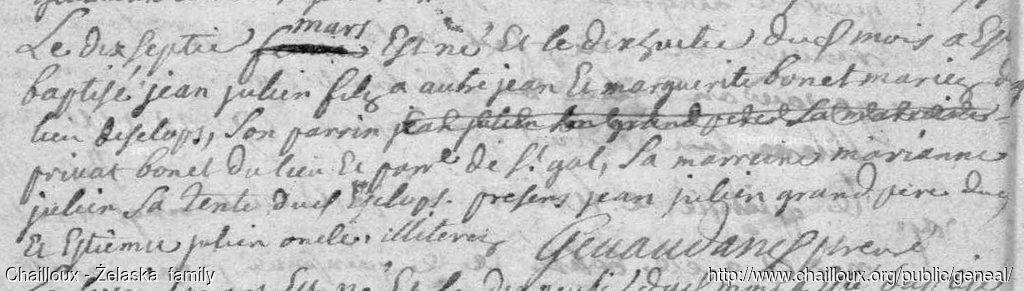 Le dixseptie mars Est né Et le dixhuitie dud mois a Est
baptisé jean julien filz a autre jean Et marguerite bonet mariez
lieu deselops, Son parrin jean julien son grand pere Sa marraine
privat bonet du lieu Et parr.e de S.t gal, Sa marreine marianne
julien Sa tente dud Eselops. presens jean julien grand pere dud
Et Estienne julien oncle, illiterez
Chailloux - Żelaska family
http://www.chailloux.org/public/geneal/